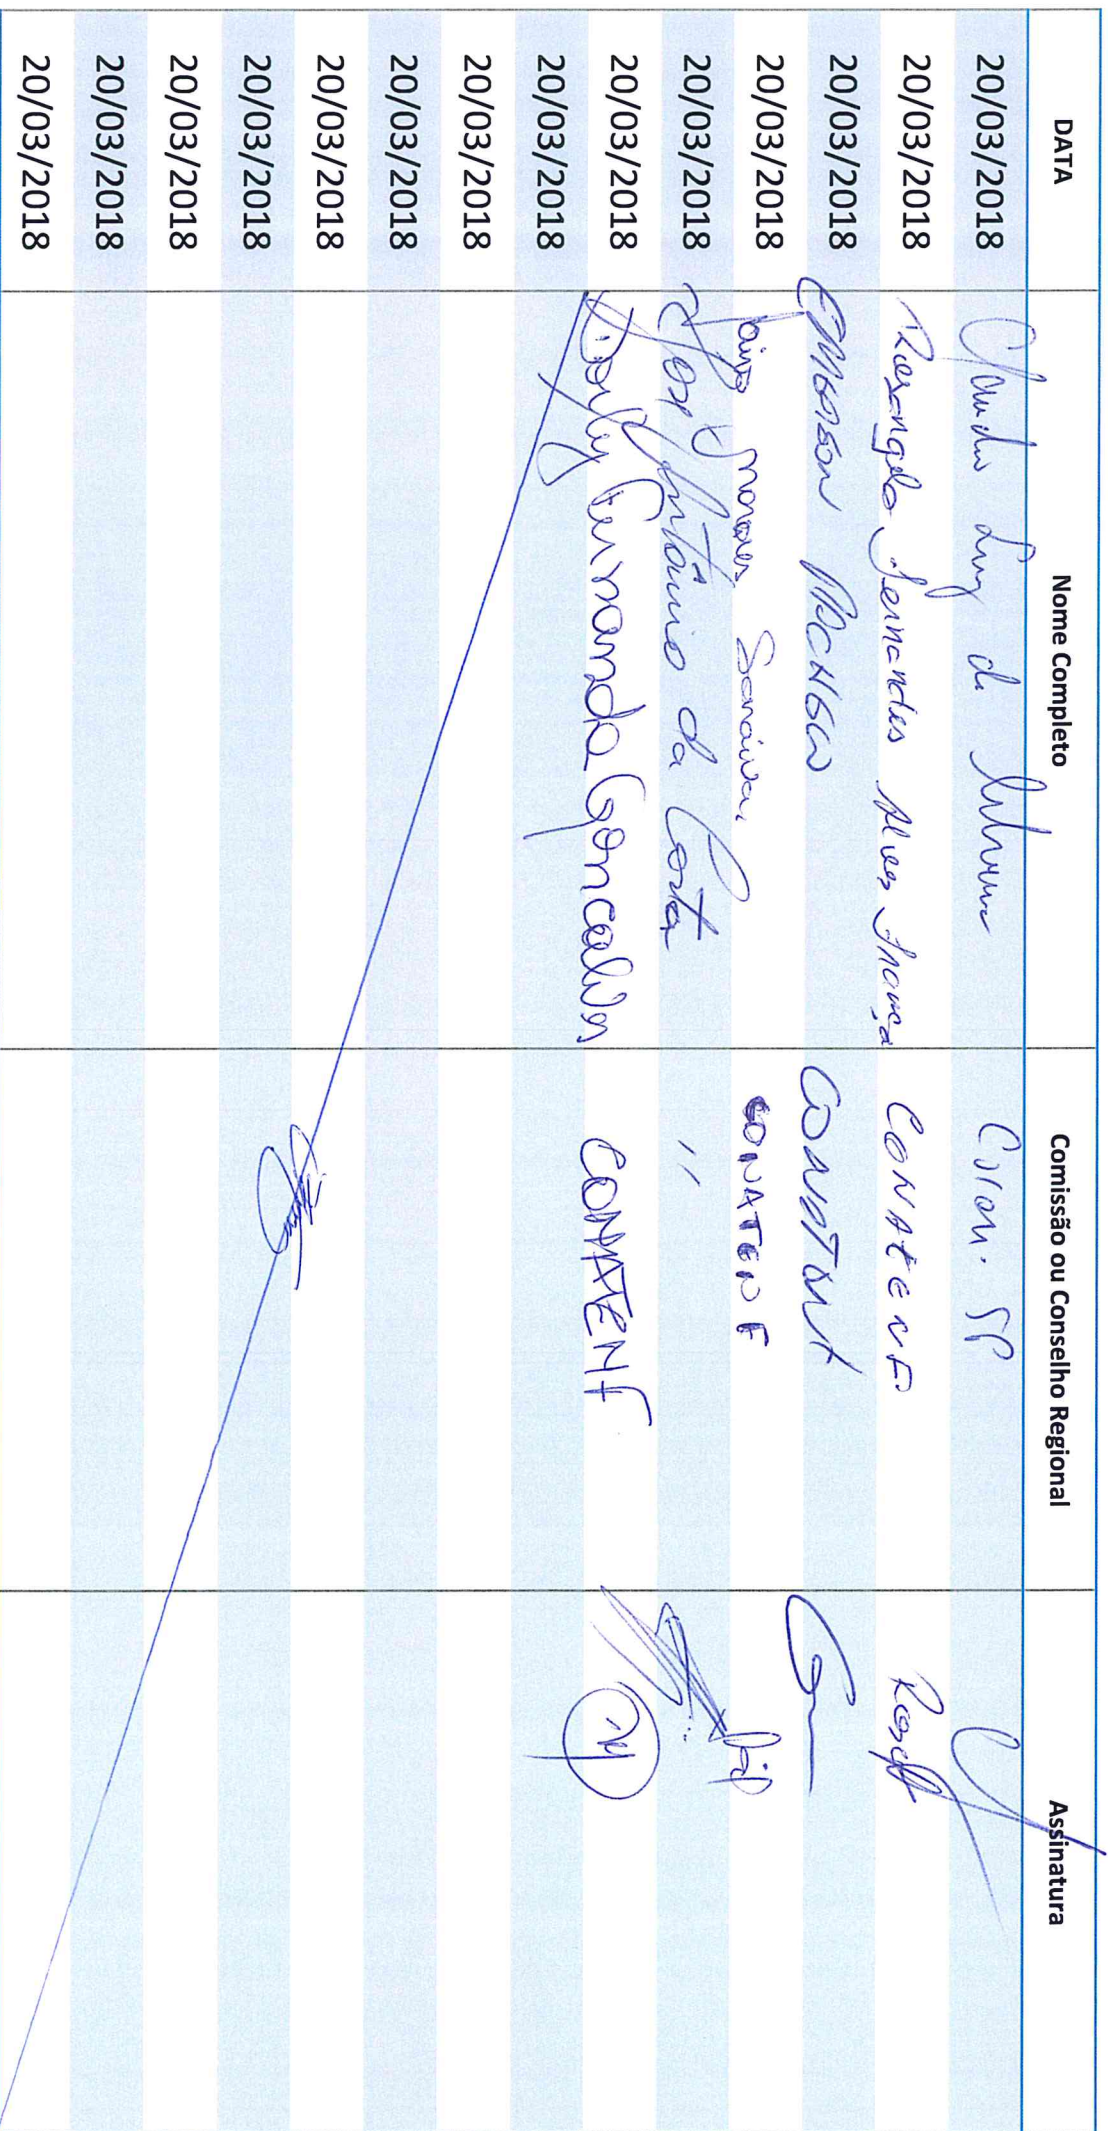 DATA Nome Completo Comissão ou Conselho Regional Assinatura
20/03/2018 Claudio Luiz da
20/03/2018 Rosangela Fernandes Alves França CONATENF
20/03/2018 EMERSON PACHECO
20/03/2018 Jairo Moraes Saraiva CONATENF
20/03/2018 José Antônio da Costa 〃
20/03/2018 Dorly Fernanda Gonçalves CONATENF
20/03/2018
20/03/2018
20/03/2018
20/03/2018
20/03/2018
20/03/2018
20/03/2018
20/03/2018